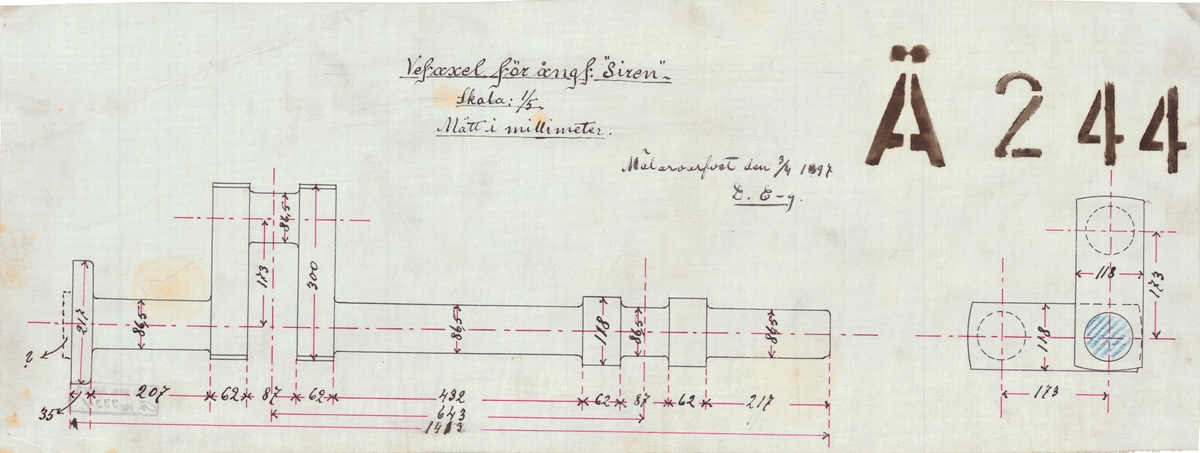 Vefaxel för ångf. "Siren".
Skala: 1/5.
Mått i millimeter.
Mälarvarfvet den 3/4 1897
D. E-g.
Ä 244
86,5
173
300
217
86,5
86,5
118
86,5
86,5
2.
35
207
62
87
62
432
62
87
62
217
643
1412
118
173
118
173